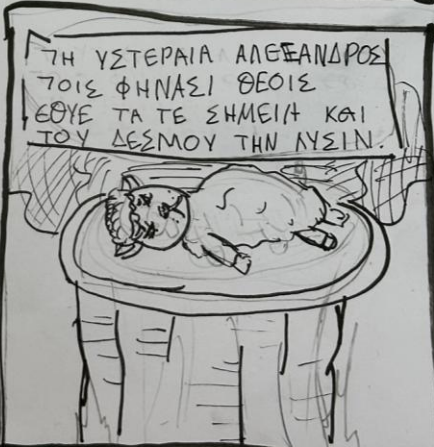 ΤΗ ΥΣΤΕΡΑΙΑ ΑΛΕΞΑΝΔΡΟΣ
ΤΟΙΣ ΦΗΝΑΣΙ ΘΕΟΙΣ
ΕΘΥΕ ΤΑ ΤΕ ΣΗΜΕΙΑ ΚΑΙ
ΤΟΥ ΔΕΣΜΟΥ ΤΗΝ ΛΥΣΙΝ.